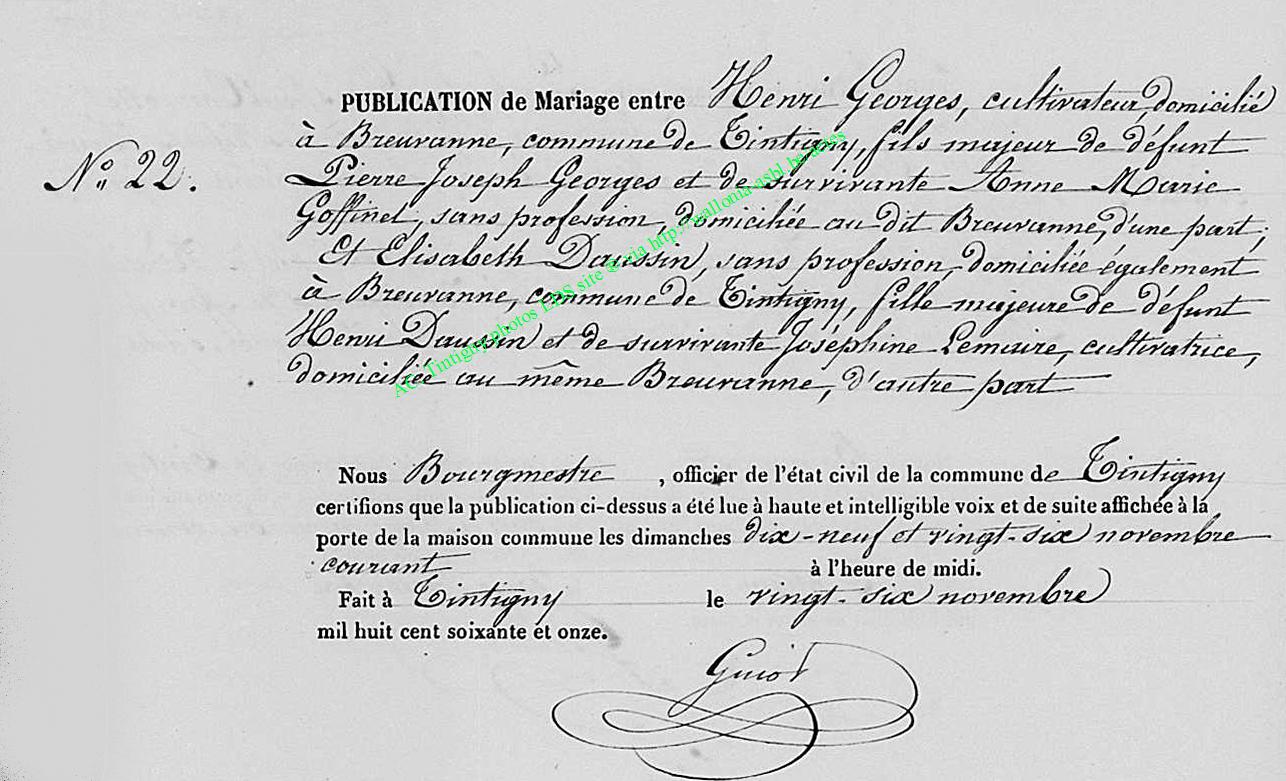 PUBLICATION de Mariage entre Henri Georges, cultivateur, domicilié
à Breuvanne, commune de Tintigny, fils majeur de défunt
N.° 22.
Pierre Joseph Georges et de survivante Anne Marie
Goffinet, sans profession, domiciliée au dit Breuvanne, d'une part;
Et Elisabeth Daussin, sans profession, domiciliée également
à Breuvanne, commune de Tintigny, fille majeure de défunt
Henri Daussin et de survivante Joséphine Lemaire, cultivatrice,
domiciliée au même Breuvanne, d'autre part
Nous Bourgmestre, officier de l'état civil de la commune de Tintigny
certifions que la publication ci-dessus a été lue à haute et intelligible voix et de suite affichée à la
porte de la maison commune les dimanches dix-neuf et vingt-six novembre
courant à l'heure de midi.
Fait à Tintigny le vingt-six novembre
mil huit cent soixante et onze.
Guiot
Tintigny photos LDS site @ via http://wallonia-asbl.be/actes